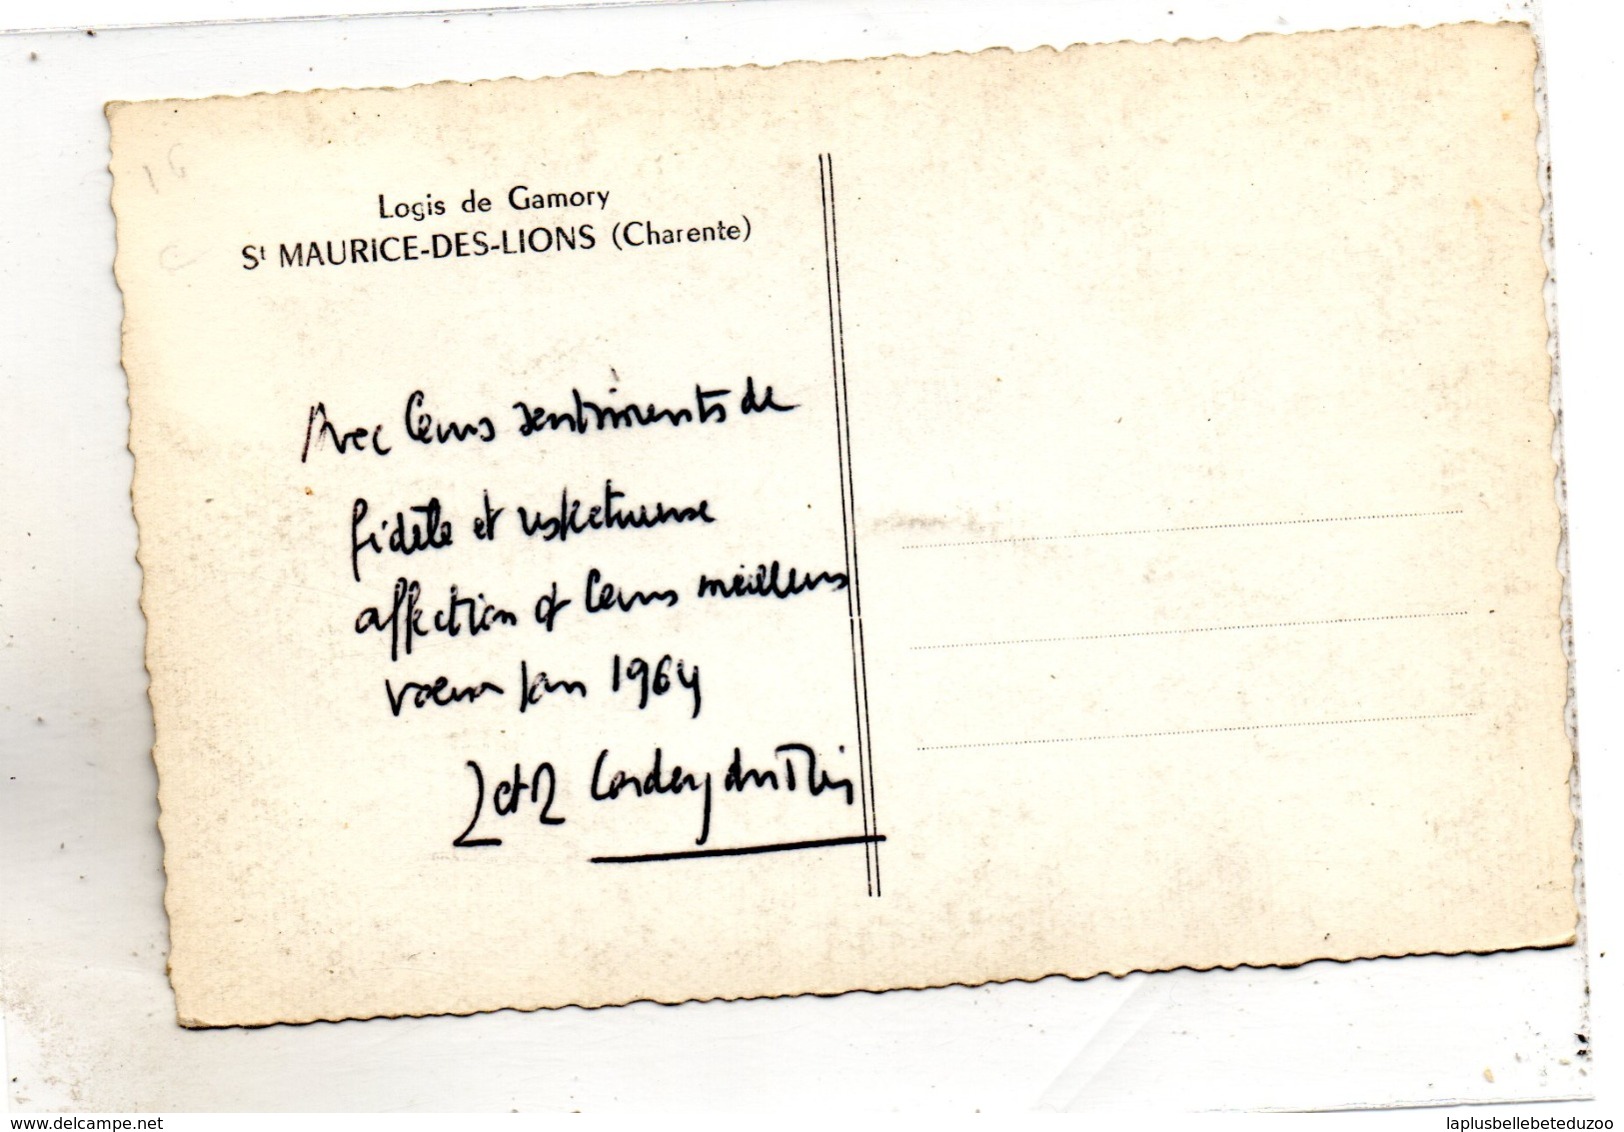 16
Logis de Gamory
St MAURICE-DES-LIONS (Charente)
c
Avec leurs sentiments de
fidèle et respectueuse
affection et leurs meilleurs
voeux pour 1964
J et R Cordey du
delcampe.net
laplusbellebeteduzoo